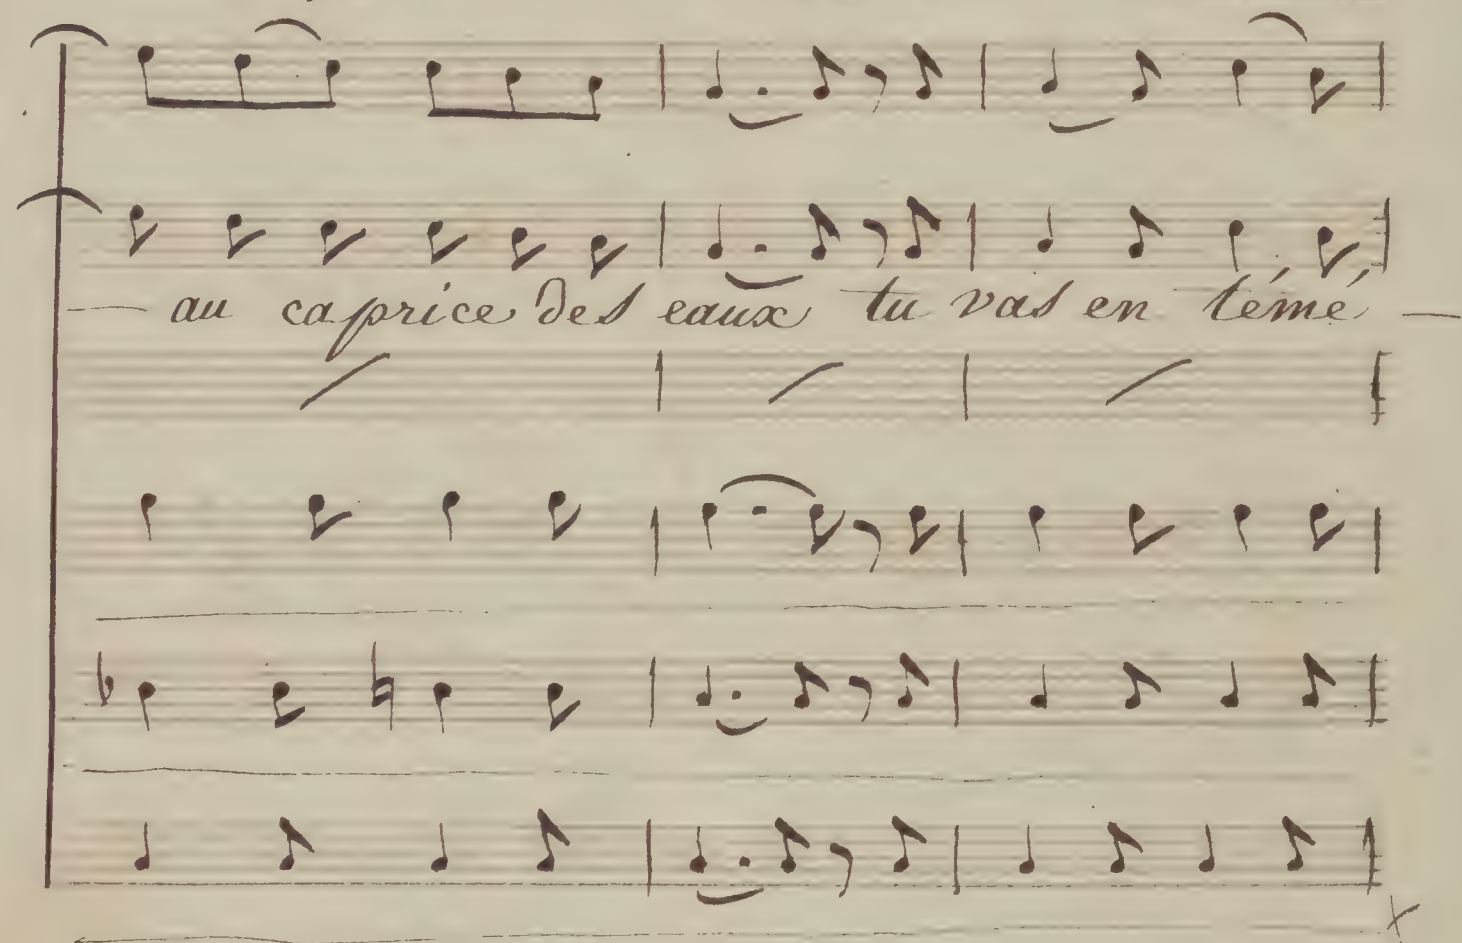 — au caprice des eaux tu vas en témé —